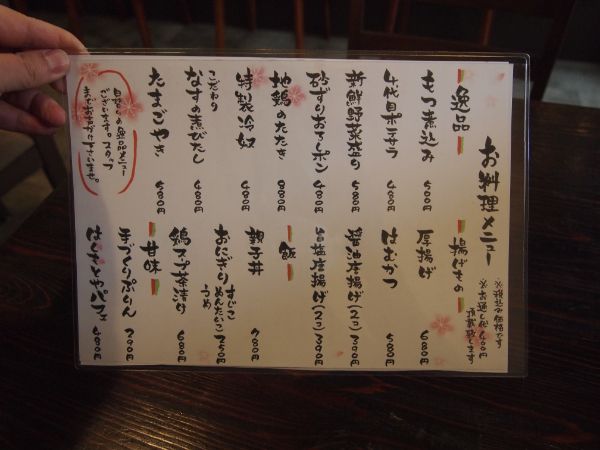 お料理メニュー
※税込み価格です
※お通し代400円
頂戴致します
逸品
もつ煮込み 500円
4代目ポテサラ 480円
新鮮野菜盛り 580円
砂ずりおろしポン 480円
地鶏のたたき 880円
特製冷奴 480円
こだわり
なすの煮びたし 480円
たまごやき 580円
日替わりの逸品メニュー
ございます。スタッフ
までお声がけ下さいませ。
揚げもの
厚揚げ 680円
はむかつ 580円
醤油唐揚げ(2コ) 390円
旨塩唐揚げ(2コ) 390円
飯
親子丼 780円
おにぎり すじこ めんたいこ うめ 250円
鶏スープ茶漬け 680円
甘味
手づくりぷりん 390円
パフェ 480円